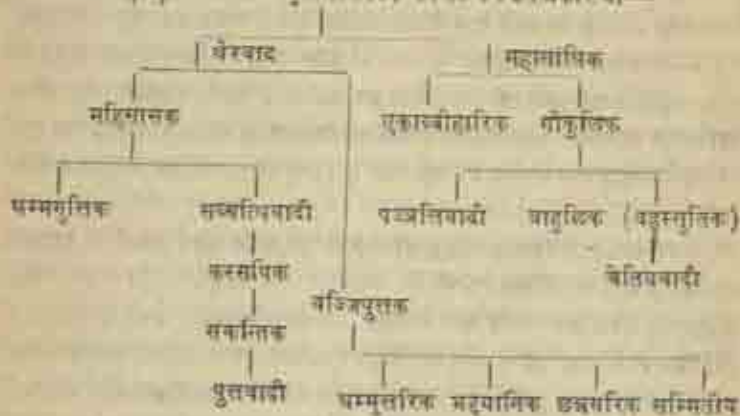 थेरवाद महासांघिक
महिंसासक एकाब्बोहारिक गोकुलिक
धम्मगुत्तिक सब्बत्थिवादी पञ्ञत्तिवादी बाहुलिक (बहुस्सुतिक)
कस्सपिक चेतियवादी
वज्जिपुत्तक
संकन्तिक
सुत्तवादी धम्मुत्तरिक भद्रयानिक छन्नगरिक सम्मितीय